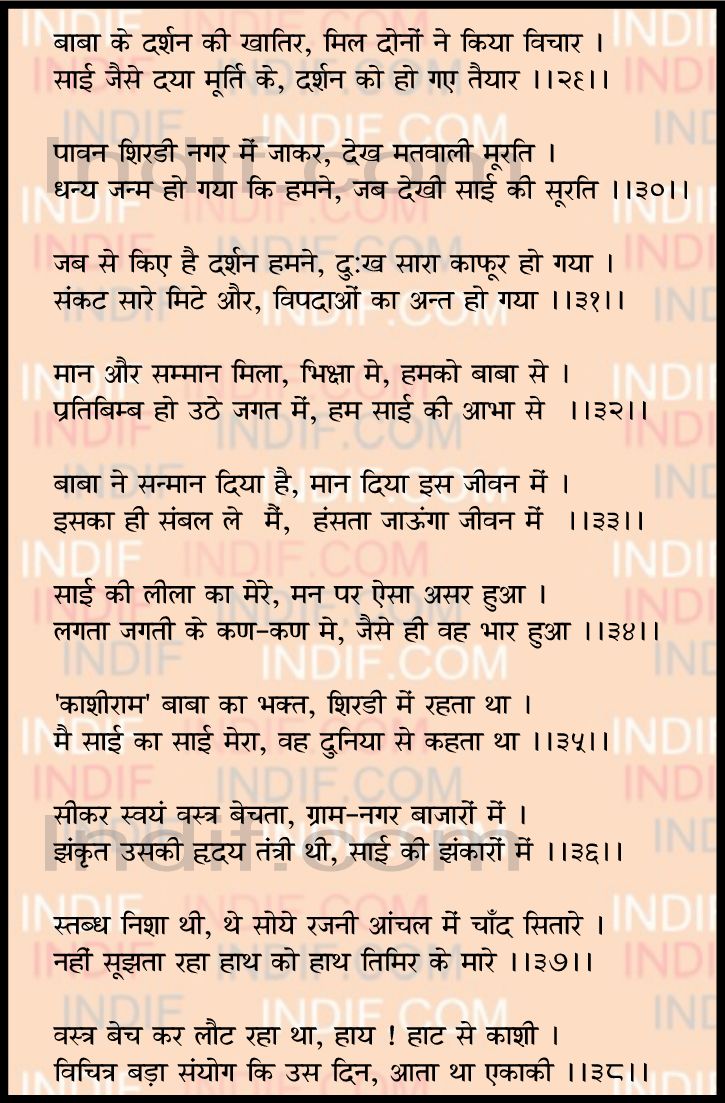 बाबा के दर्शन की खातिर, मिल दोनों ने किया विचार ।
साई जैसे दया मूर्ति के, दर्शन को हो गए तैयार ।।२९।।
पावन शिरडी नगर में जाकर, देख मतवाली मूरति ।
धन्य जन्म हो गया कि हमने, जब देखी साई की सूरति ।।३०।।
जब से किए है दर्शन हमने, दुःख सारा काफूर हो गया ।
संकट सारे मिटे और, विपदाओं का अन्त हो गया ।।३१।।
मान और सम्मान मिला, भिक्षा मे, हमको बाबा से ।
प्रतिबिम्ब हो उठे जगत में, हम साई की आभा से ।।३२।।
बाबा ने सन्मान दिया है, मान दिया इस जीवन में ।
इसका ही संबल ले मैं, हंसता जाऊंगा जीवन में ।।३३।।
साई की लीला का मेरे, मन पर ऐसा असर हुआ ।
लगता जगती के कण-कण मे, जैसे ही वह भार हुआ ।।३४।।
'काशीराम' बाबा का भक्त, शिरडी में रहता था ।
मै साई का साई मेरा, वह दुनिया से कहता था ।।३५।।
सीकर स्वयं वस्त्र बेचता, ग्राम-नगर बाजारों में ।
झंकृत उसकी हृदय तंत्री थी, साई की झंकारों में ।।३६।।
स्तब्ध निशा थी, थे सोये रजनी आंचल में चाँद सितारे ।
नहीं सूझता रहा हाथ को हाथ तिमिर के मारे ।।३७।।
वस्त्र बेच कर लौट रहा था, हाय ! हाट से काशी ।
विचित्र बड़ा संयोग कि उस दिन, आता था एकाकी ।।३८।।